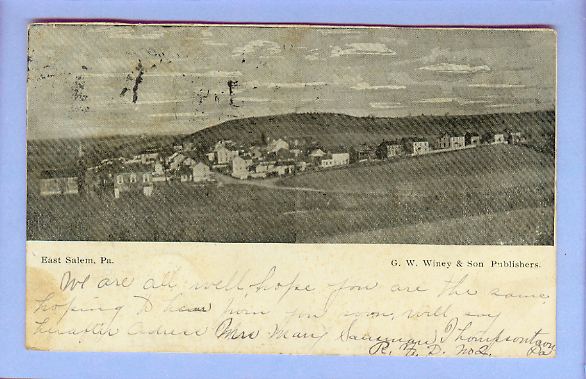 East Salem, Pa.
G. W. Winey & Son Publishers.
We are all well, hope you are the same
hoping to hear from you again, will say
hereafter adress Mrs Mary Thompsontown
R. F. D. No 2. Pa